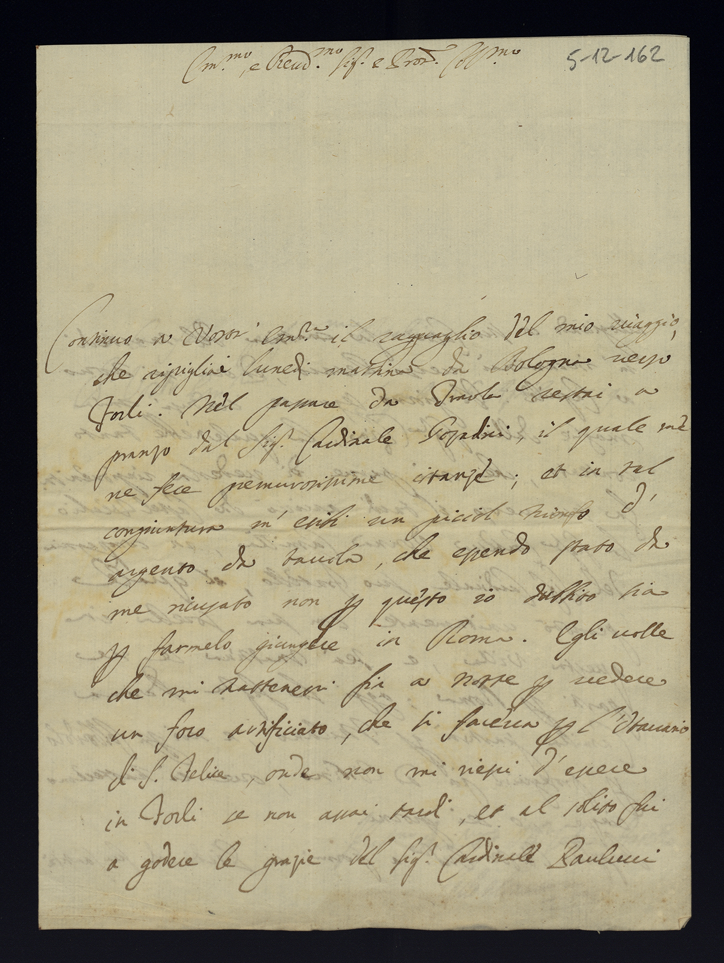 Em.mo e Reud.mo Sig.r e Pron. Coll.mo
5-12-162
Continuo a Vostr' Em.za il ragguaglio del mio viaggio,
che ripigliai lunedì mattina da Bologna verso
Forlì. Nel passare da Imola restai a
pranso dal Sig.r Cardinale Gozadini, il quale me
ne fece premurosissime istanze; et in tal
congiuntura m'esibì un piccol trionfo d'
argento da tauola, che essendo stato da
me ricusato non per questo io dubbito sia
per farmelo giungere in Roma. Egli uolle
che mi trattenessi sin a notte per uedere
un foco artificiato, che si faceua per l'Ottauario
di S. Felice, onde non mi riesì d'essere
in Forlì se non assai tardi, et al solito fui
a godere le grazie del Sig.r Cardinale Paulucci